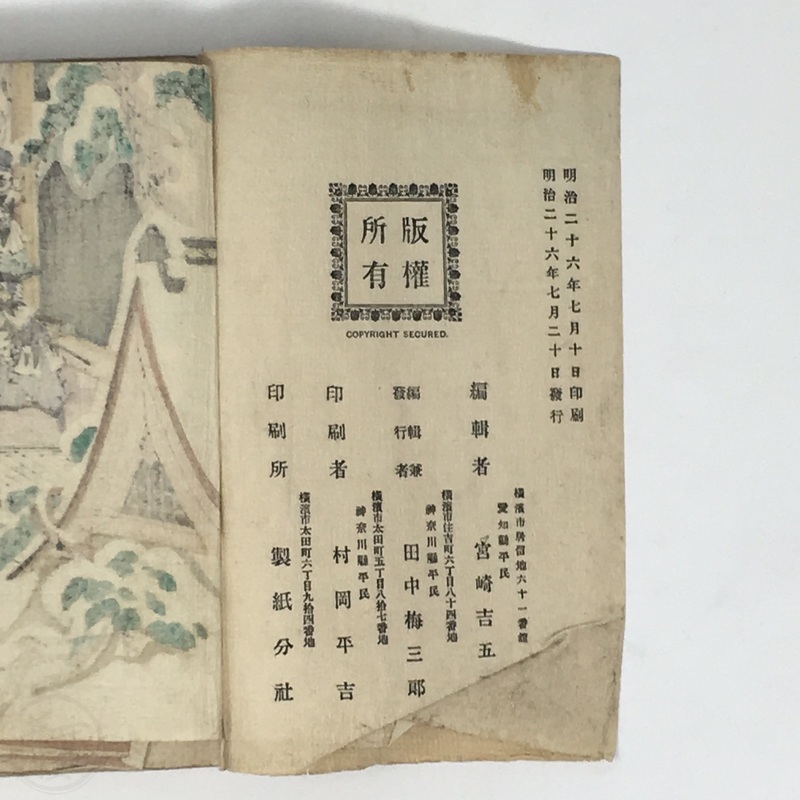 明治二十六年七月十日印刷
明治二十六年七月二十日發行
版權
所有
COPYRIGHT SECURED.
編輯者
橫濱市居留地六十一番館
愛知縣平民
宮崎吉五
編輯兼
發行者
橫濱市住吉町六丁目八十四番地
神奈川縣平民
田中梅三郎
印刷者
橫濱市太田町五丁目八拾七番地
神奈川縣平民
村岡平吉
印刷所
橫濱市太田町六丁目九拾四番地
製紙分社